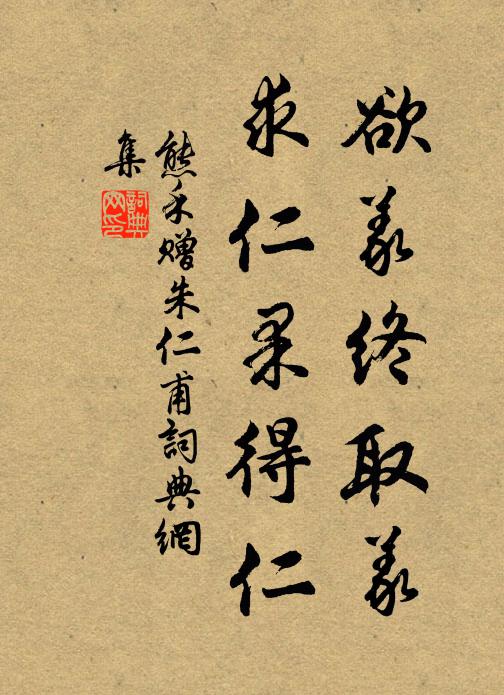 欲義終取義
求仁果得仁
熊禾贈朱仁甫詞典網
集
詞典
网印